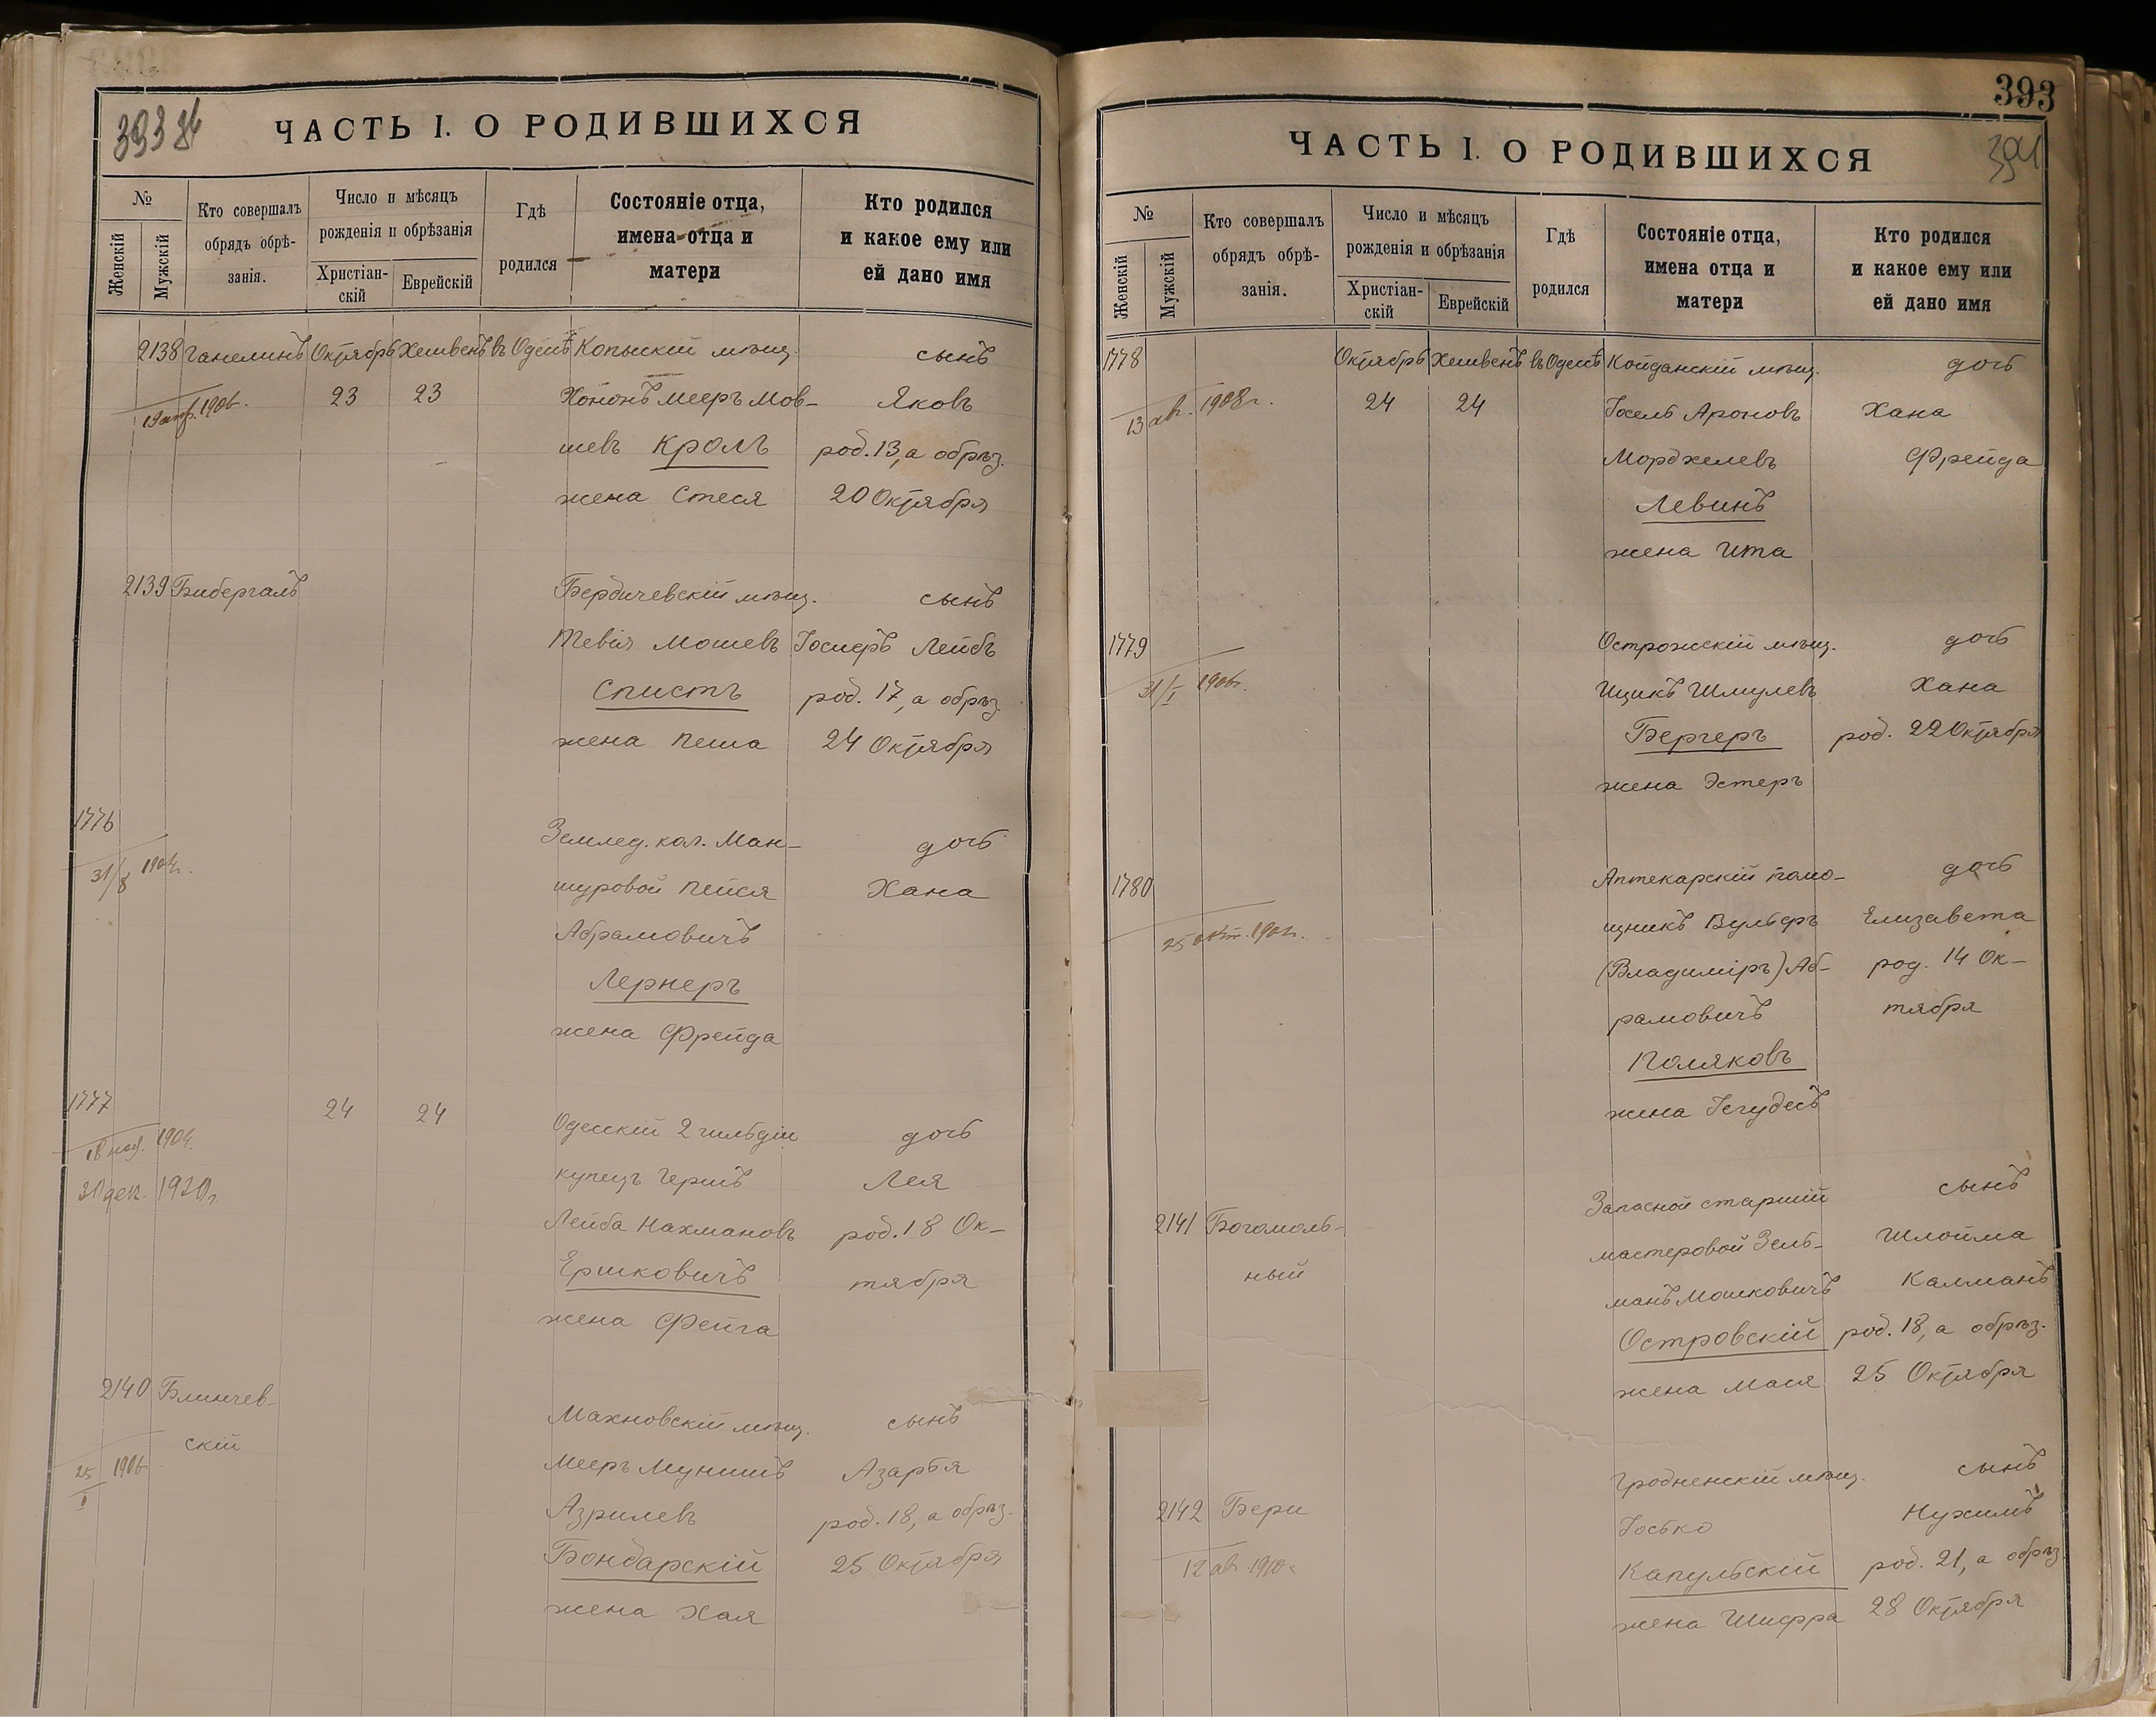 393
ЧАСТЬ I. О РОДИВШИХСЯ
№
Женскій
Мужскій
Кто совершалъ
обрядъ обрѣ-
занія.
Число и мѣсяцъ
рожденія и обрѣзанія
Христіан-
скій
Еврейскій
Гдѣ
родился
Состояніе отца,
имена отца и
матери
Кто родился
и какое ему или
ей дано имя
2138 Ганелинъ Октябрь Хешвенъ въ Одессѣ Копыскій мѣщ. сынъ
1906. 23 23 Хононъ Мееръ Мов- Яковъ
шевъ Кролъ род. 13, а обрѣз.
жена Стеся 20 Октября
2139 Бибергалъ Бердичевскій мѣщ. сынъ
Тевія Мошевъ Іосифъ Лейбъ
Спистъ род. 17, а обрѣз.
жена Песя 24 Октября
1776
Землед. кол. Ман- дочь
31/8 1904г. шуровой Пейся Хана
Абрамовичъ
Лернеръ
жена Фрейда
1777 24 24 Одесскій 2 гильдіи дочь
18 ноя. 1904.
купецъ Гершъ Лея
30 дек. 1910г.
Лейба Нахмановъ род. 18 Ок-
Ершковичъ тября
жена Фейга
2140 Блинчев-
скій
Махновскій мѣщ. сынъ
25/I 1906 Мееръ Мунишъ Азарья
Азрилевъ род. 18, а обрѣз.
Бондарскій 25 Октября
жена Хая
393
394
ЧАСТЬ I. О РОДИВШИХСЯ
№
Женскій
Мужскій
Кто совершалъ
обрядъ обрѣ-
занія.
Число и мѣсяцъ
рожденія и обрѣзанія
Христіан-
скій
Еврейскій
Гдѣ
родился
Состояніе отца,
имена отца и
матери
Кто родился
и какое ему или
ей дано имя
1778 Октябрь Хешвенъ въ Одессѣ Койданскій мѣщ. дочь
13 авг. 1908г. 24 24 Іосель Ароновъ Хана
Мордхелевъ Фрейда
Левинъ
жена Ита
1779 Острожскій мѣщ. дочь
31/I 1906г. Ицикъ Шмулевъ Хана
Бергеръ род. 22 Октября
жена Эстеръ
1780 Аптекарскій помо- дочь
щникъ Вульфъ Елизавета
25 окт. (Владиміръ) Аб- род. 14 Ок-
рамовичъ тября
Поляковъ
жена Іегудесъ
Запасной старшій сынъ
2141 Богомоль-
ный
мастеровой Зель- Шлойма
манъ Мошковичъ Калманъ
Островскій род. 18, а обрѣз.
жена Мася 25 Октября
Гродненскій мѣщ. сынъ
2142 Бери Іосько Нухимъ
12 ав. 1910г Капульскій род. 21, а обрѣз.
жена Шифра 28 Октября